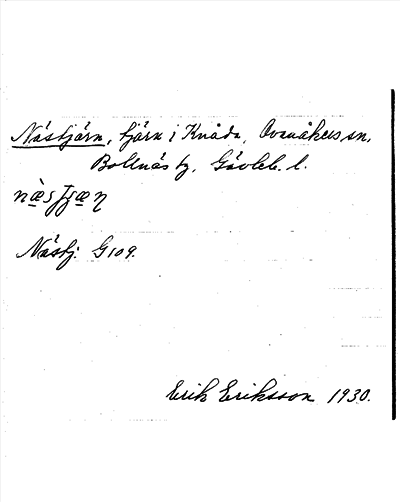 Nästjärn, tjärn i Knåda, Ovanåkers sn,
Bollnäs tg, Gävleb. l.
næ̀sʃæɳ
Nästj: G 109.
Erik Eriksson 1930.